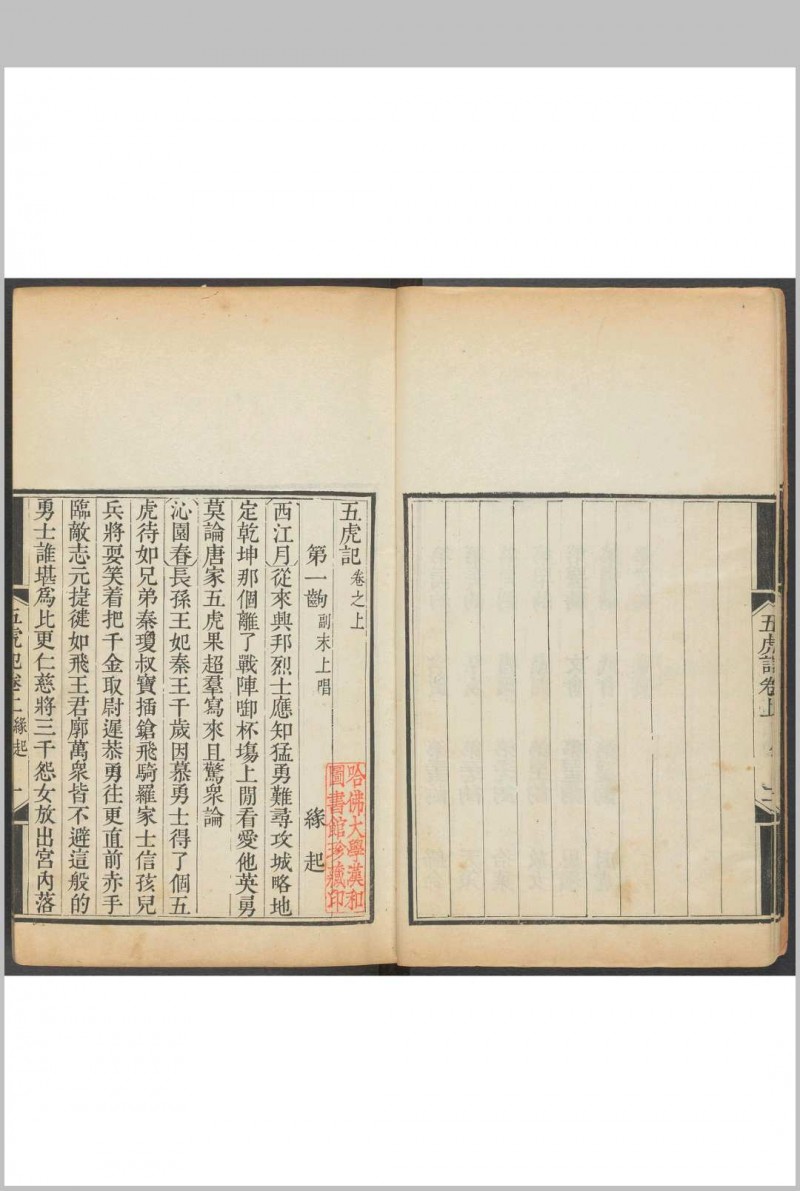 五虎記卷上
五虎記 卷之上
第一齣 副末上唱 緣起
哈佛大學漢和
圖書館珍藏印
西江月從來興邦烈士應知猛勇難尋攻城略地
定乾坤那個離了戰陣啣杯塲上閒看愛他英勇
莫論唐家五虎果超羣寫來且驚衆論
沁園春長孫王妃秦王千歲因慕勇士得了個五
虎待如兄弟秦瓊叔寶插鎗飛騎羅家士信孩兒
兵將耍笑着把千金取尉遲恭勇往更直前赤手
臨敵志元捷徤如飛王君廓萬衆皆不避這般的
勇士誰堪爲比更仁慈將三千怨女放出宮內落
五虎記卷上 緣起 一